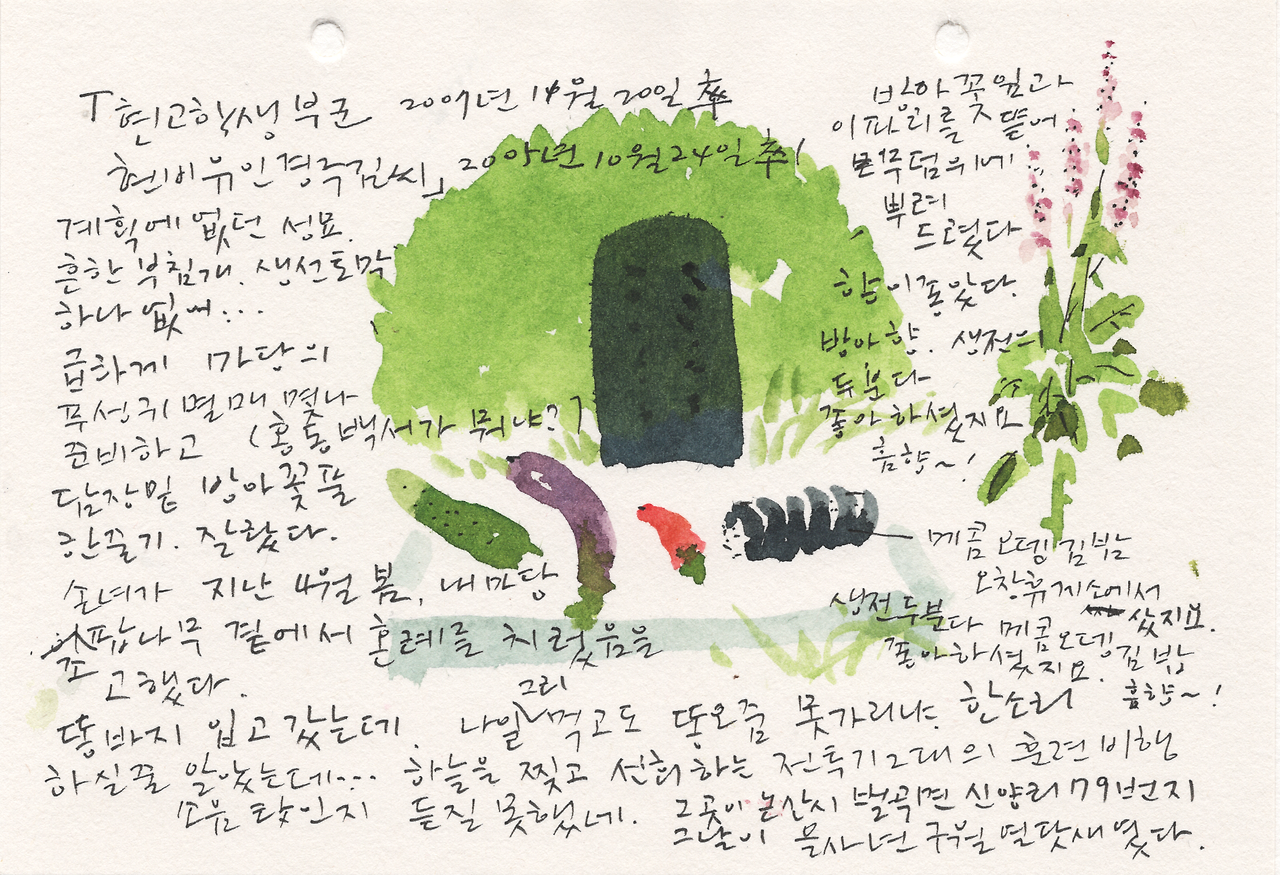 「현고학생부군 2007년 11월 20일 卒
현비유인경주김씨」 2005년 10월 24일 卒!
계획에 없던 성묘.
흔한 부침개. 생선토막
하나 없어...
급하게 마당의
푸성귀 열매 몇개
준비하고 (홍동백서가 뭐냐?)
담장밑 방아꽃풀
한줄기. 잘랐다.
손녀가 지난 4월 봄, 내마당
팝나무 곁에서 혼례를 치렀음을
고했다.
똥바지 입고 갔는데. 나일 그리 먹고도 똥오줌 못가리냐. 한소리
하실줄 알았는데... 하늘을 찢고 선회하는 전투기 2대의 훈련비행
소음 탓인지 듣질 못했네.
방아꽃잎과
이파리를 뜯어
무덤위에
뿌려
드렸다
향이 좋았다.
방아향. 생전의
두분다
좋아하셨지요
흠향~!
메콤오뎅김밥
오창휴게소에서
샀지요.
생전 두분다 메콤오뎅김밥
좋아하셨지요.
흠향~!
그곳이 논산시 벌곡면 신양리 79번지
그날이 물사년 구월 열닷새였다.